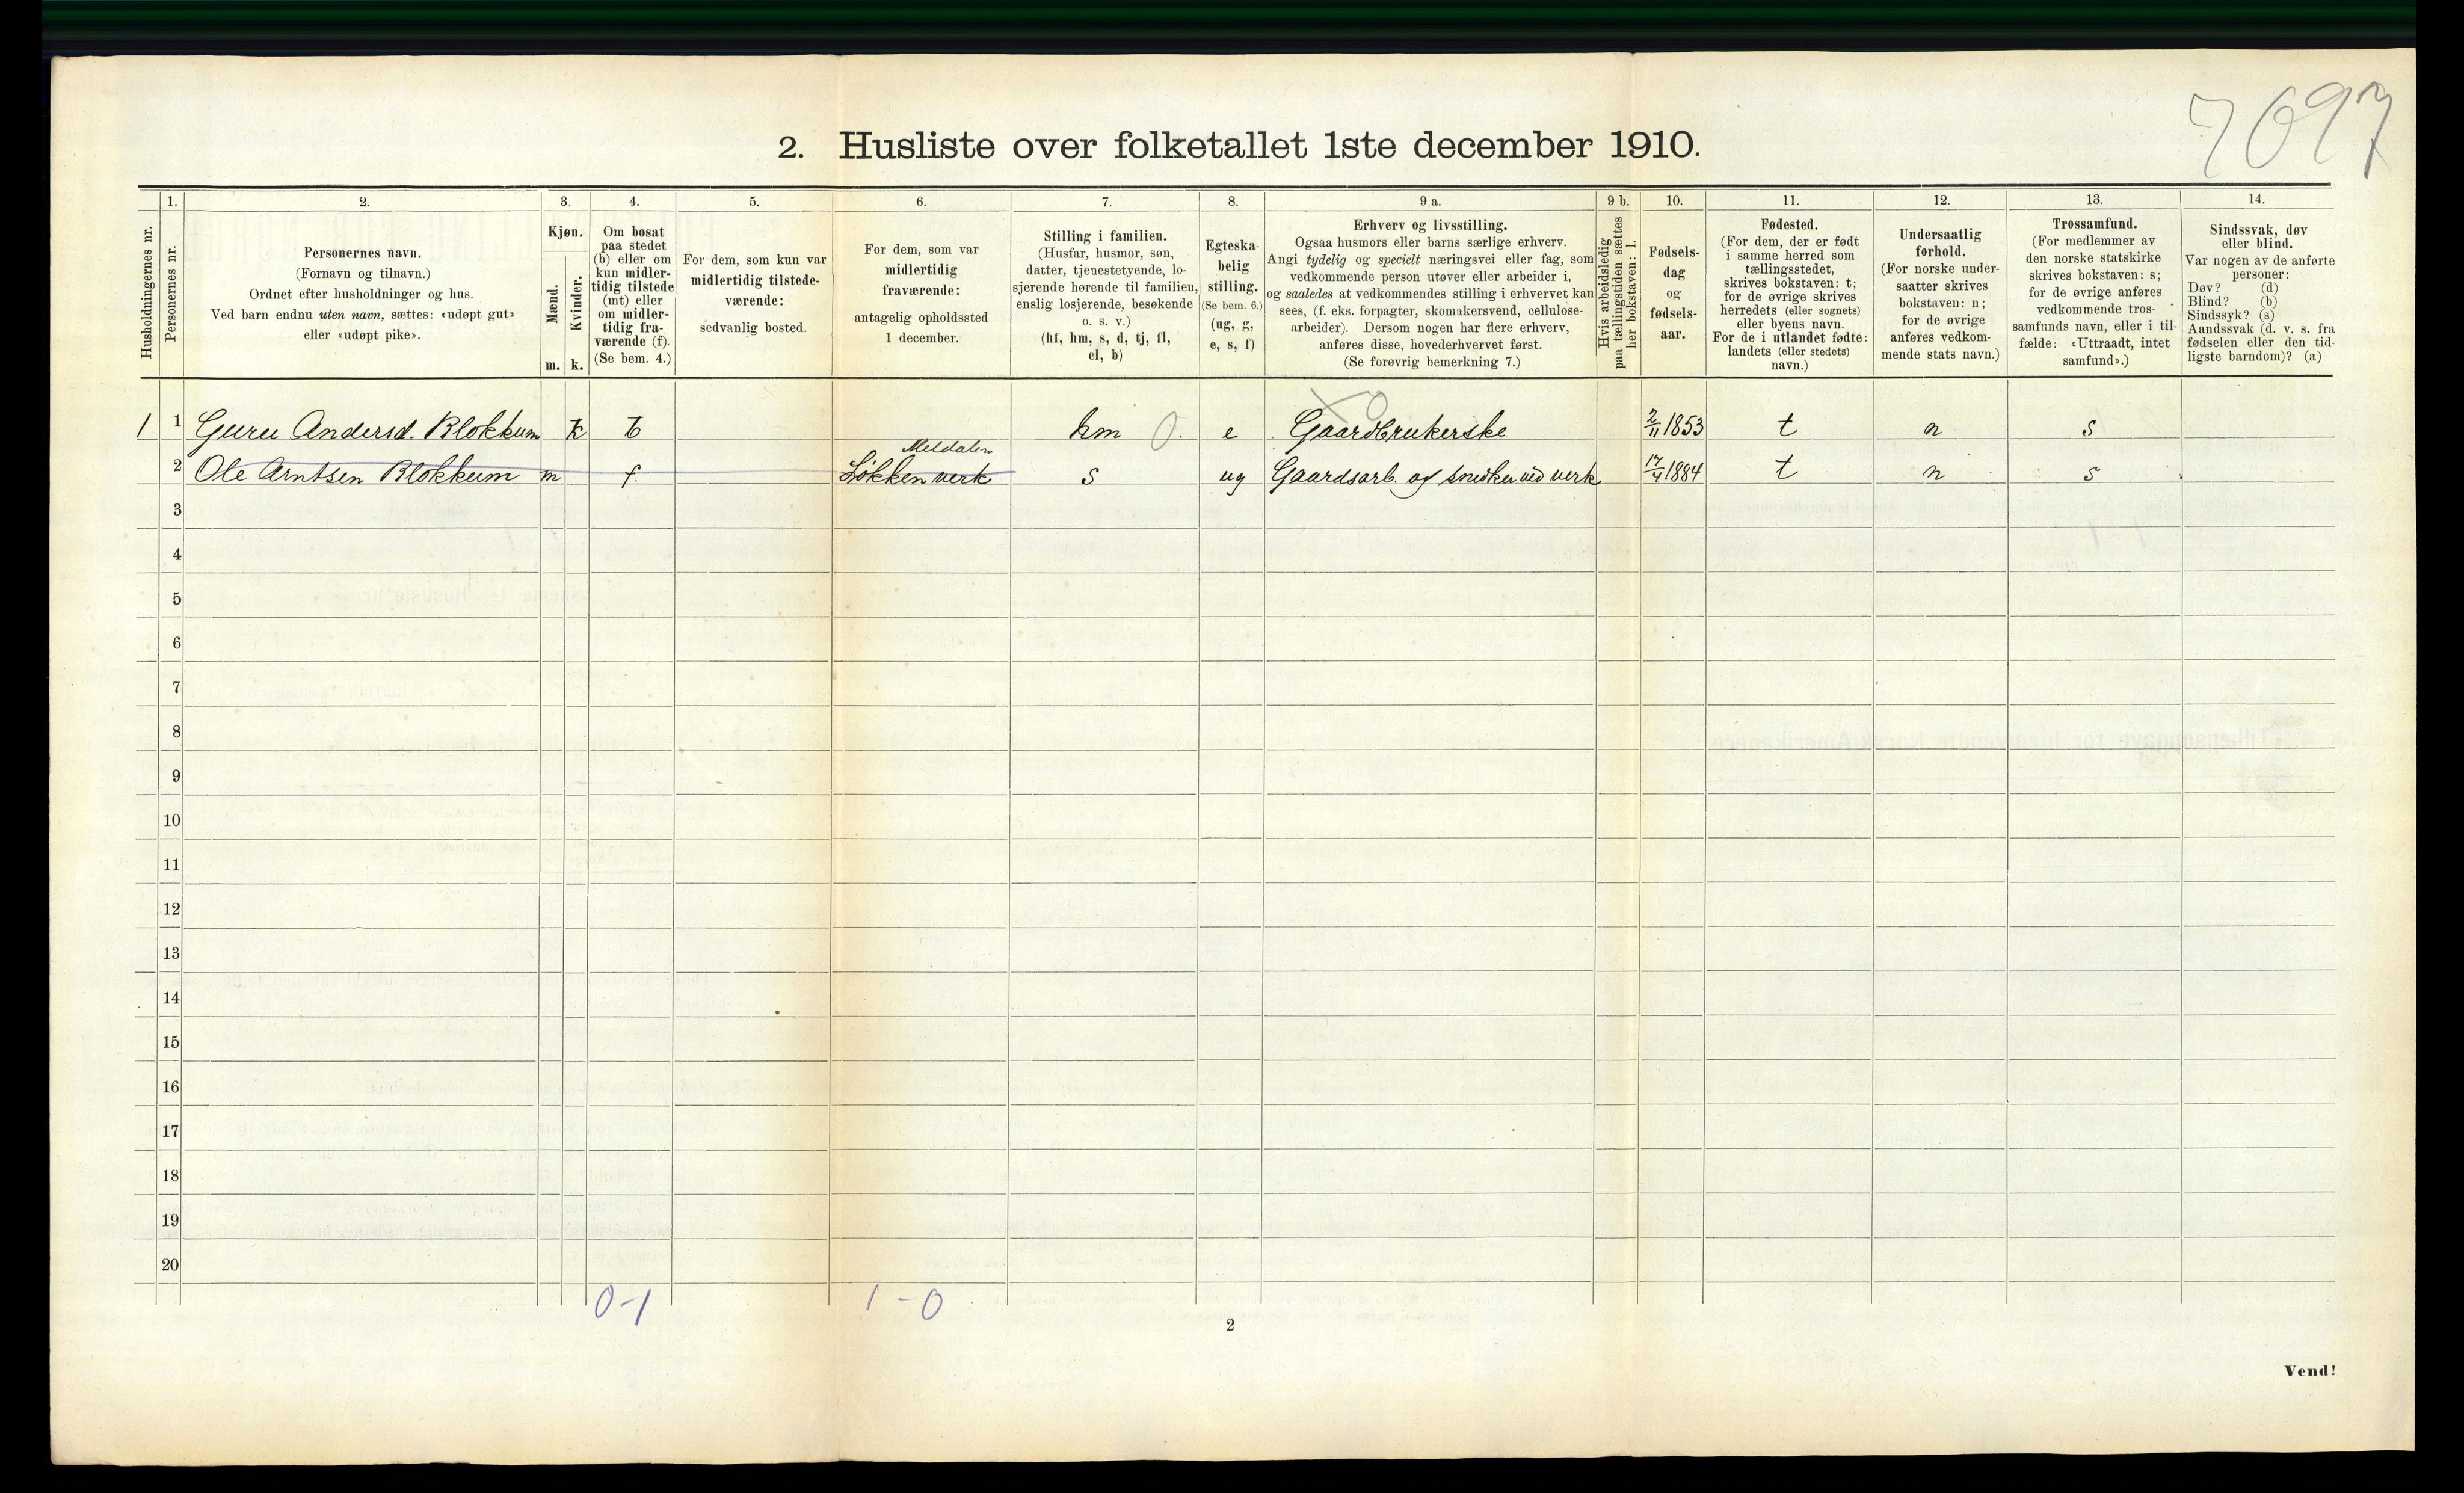 7097
2. Husliste over folketallet 1ste december 1910.
Husholdningernes nr.
1.
Personernes nr.
2.
Personernes navn.
(Fornavn og tilnavn.)
Ordnet efter husholdninger og hus.
Ved barn endnu uten navn, sættes: «udøpt gut»
eller «udøpt pike».
3.
Kjøn.
Mænd.
Kvinder.
m. k.
4.
Om bosat
paa stedet
(b) eller om
kun midler-
tidig tilstede
(mt) eller
om midler-
tidig fra-
værende (f).
(Se bem. 4.)
5.
For dem, som kun var
midlertidig tilstede-
værende:
sedvanlig bosted.
6.
For dem, som var
midlertidig
fraværende:
antagelig opholdssted
1 december.
7.
Stilling i familien.
(Husfar, husmor, søn,
datter, tjenestetyende, lo-
sjerende hørende til familien,
enslig losjerende, besøkende
o. s. v.)
(hf, hm, s, d, tj, fl,
el, b)
8.
Egteska-
belig
stilling.
(Se bem. 6.)
(ug, g,
e, s, f)
9 a.
Erhverv og livsstilling.
Ogsaa husmors eller barns særlige erhverv.
Angi tydelig og specielt næringsvei eller fag, som
vedkommende person utøver eller arbeider i,
og saaledes at vedkommendes stilling i erhvervet kan
sees, (f. eks. forpagter, skomakersvend, cellulose-
arbeider). Dersom nogen har flere erhverv,
anføres disse, hovederhvervet først.
(Se forøvrig bemerkning 7.)
9 b.
Hvis arbeidsledig
paa tællingstiden sættes
her bokstaven: l.
10.
Fødsels-
dag
og
fødsels-
aar.
11.
Fødested.
(For dem, der er født
i samme herred som
tællingsstedet,
skrives bokstaven: t;
for de øvrige skrives
herredets (eller sognets)
eller byens navn.
For de i utlandet fødte:
landets (eller stedets)
navn.)
12.
Undersaatlig
forhold.
(For norske under-
saatter skrives
bokstaven: n;
for de øvrige
anføres vedkom-
mende stats navn.)
13.
Trossamfund.
(For medlemmer av
den norske statskirke
skrives bokstaven: s;
for de øvrige anføres
vedkommende tros-
samfunds navn, eller i til-
fælde: «Uttraadt, intet
samfund».)
14.
Sindssvak, døv
eller blind.
Var nogen av de anførte
personer:
Døv? (d)
Blind? (b)
Sindssyk? (s)
Aandssvak (d. v. s. fra
fødselen eller den tid-
ligste barndom)? (a)
1 1 Guru Andersd. Blokkum k b hm 0 e Gaardbrukerske 2/11 1853 t n s
Meldalen
2 Ole Arntsen Blokkum m f. Løkken verk s ug Gaardsarb. og snedker ved verk 17/4 1884 t n s
3
4
5
6
7
8
9
10
11
12
13
14
15
16
17
18
19
20
0-1 1-0
2
Vend!